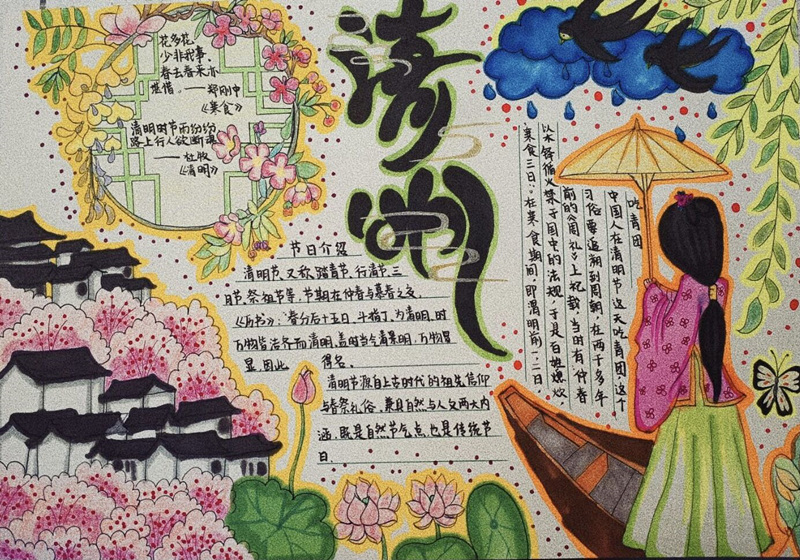 清明
花多花
少非我事,
春去春来亦
堪惜.——郑刚中
《寒食》
清明时节雨纷纷
路上行人欲断魂
——杜牧
《清明》
节日介绍
清明节,又称踏青节、行清节、三
月节、祭祖节等,节期在仲春与暮春之交.
《历书》:"春分后十五日,斗指丁,为清明,时
万物皆洁齐而清明,盖时当气清景明,万物皆
显,因此 得名.
清明节源自上古时代的祖先信仰
与春祭礼俗,兼具自然与人文两大内
涵,既是自然节气点,也是传统节
日.
吃青团
中国人在清明节这天吃青团这个
习俗要追溯到周朝,在两千多年
前的《周礼》上记载,当时有仲春
以木铎循火禁于国中的法规,于是百姓熄炊,
寒食三日:在寒食期间,即清明前一二日